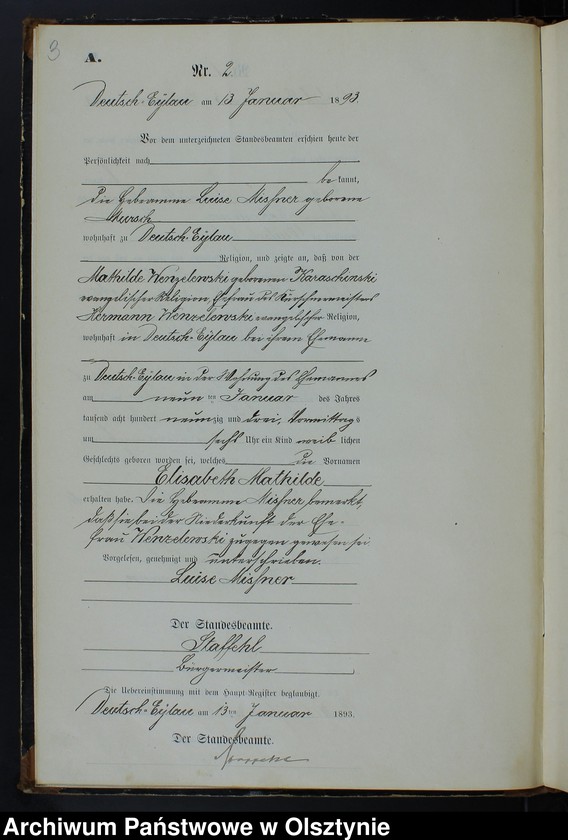 3
A.
Nr. 2
Deutsch-Eylau am 13 Januar 1893.
Vor dem unterzeichneten Standesbeamten erschien heute der
Persönlichkeit nach
be kannt,
die Hebeamme Luise Missner geborene
wohnhaft zu Deutsch-Eylau
Religion, und zeigte an, daß von der
Mathilde Wenzelewski geborenen Karaschinski
evangelischer Religion, Ehefrau des Kürschnermeisters
Hermann Wenzelewski evangelischer Religion,
wohnhaft in Deutsch-Eylau bei ihrem Ehemanne
zu Deutsch-Eylau in der Wohnung des Ehemannes
am neun ten Januar des Jahres
tausend acht hundert neunzig und drei, Vormittags
um sechs Uhr ein Kind weib lichen
Geschlechts geboren worden sei, welches die Vornamen
Elisabeth Mathilde
erhalten habe. Die Hebeamme Missner bemerkt,
daß sie bei der Niederkunft der Ehe-
frau Wenzelewski zugegen gewesen sei
Vorgelesen, genehmigt und unterschrieben.
Luise Missner
Der Standesbeamte.
Staffehl
Bürgermeister
Die Uebereinstimmung mit dem Haupt-Register beglaubigt.
Deutsch-Eylau am 13ten Januar 1893.
Der Standesbeamte.
Archiwum Państwowe w Olsztynie